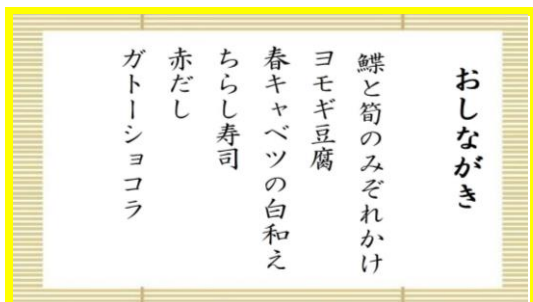 おしながき
鰈と筍のみぞれかけ
ヨモギ豆腐
春キャベツの白和え
ちらし寿司
赤だし
ガトーショコラ